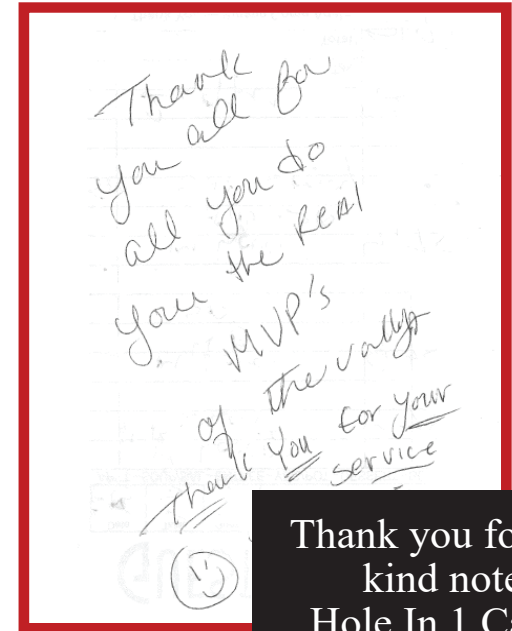 Thank
you all for
all you do
your the Real
MVP's
of the vally
Thank You for your
service
Thank you fo
kind note
Hole In 1 Ca